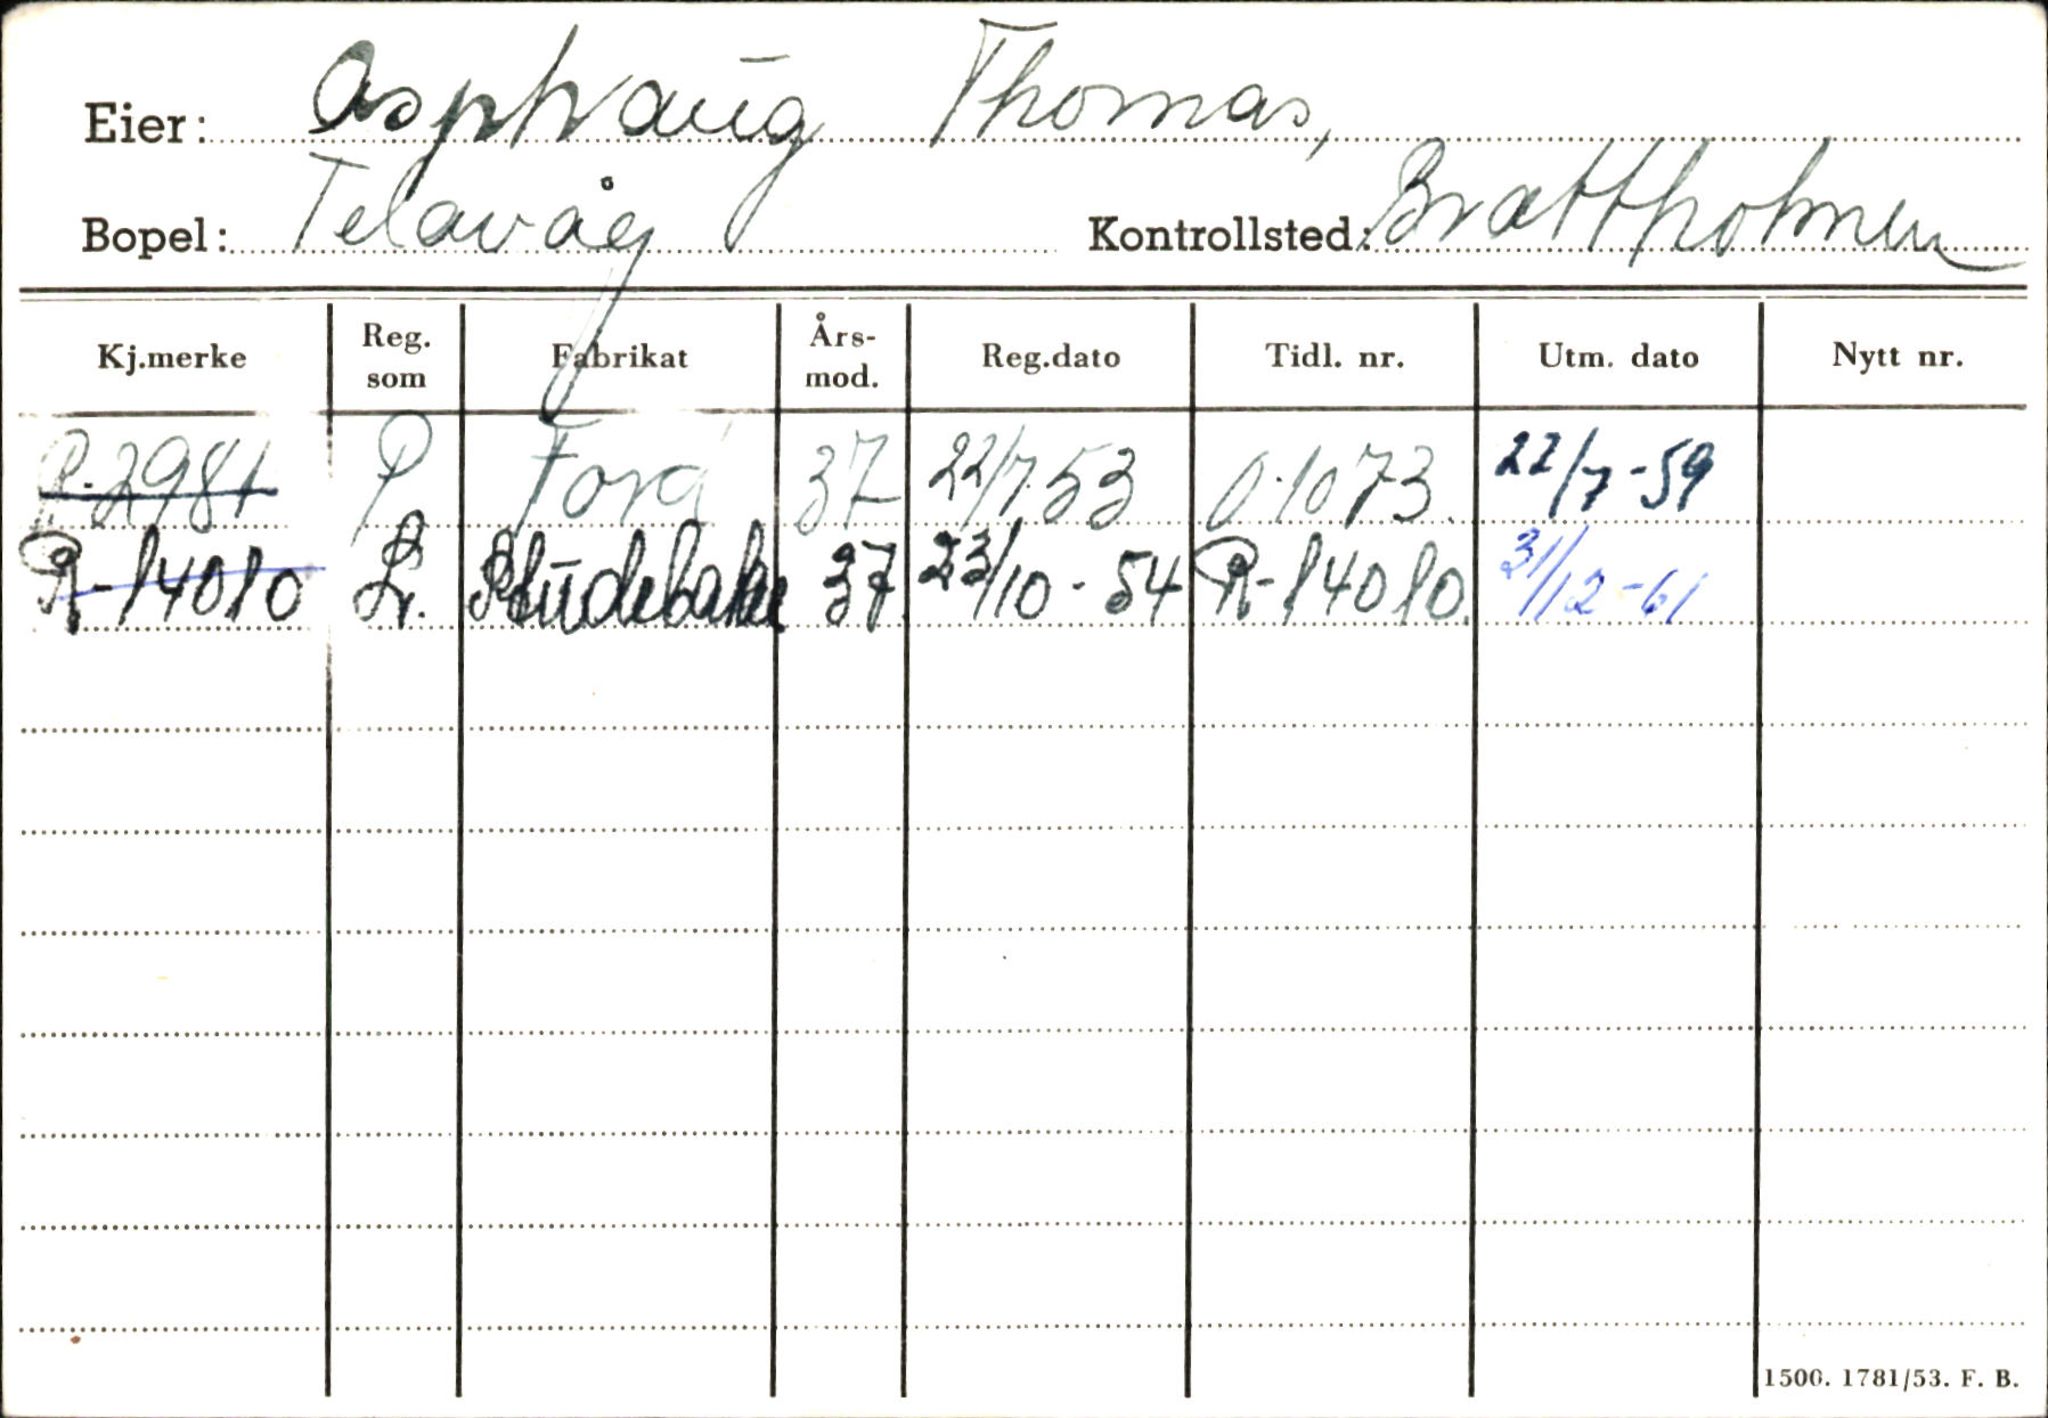 Eier: Asphaug Thomas,
Bopel: Telavåg Kontrollsted: Brattholmen
Kj.merke Reg. som Fabrikat Års- mod. Reg.dato Tidl. nr. Utm. dato Nytt nr.
R-2981 P Ford 37 22/7.53 O-1073. 22/7-59
R-14010 Lv. Studebaker 37. 23/10-54 R-14010. 31/12-61
1500. 1781/53. F. B.